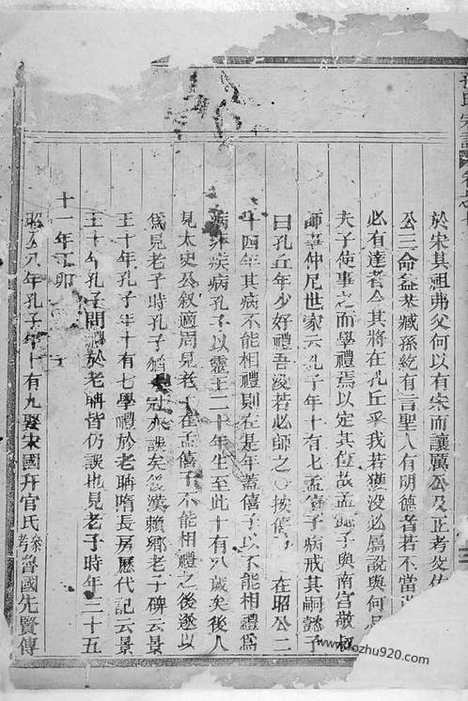 於宋其祖弗父何以有宋而讓厲公及正考父佐
公三命益共臧孫紇有言聖人有明德者若不當
必有達者今其將在孔丘乎我若獲沒必屬說與何
夫子使事之而學禮焉以定其位故孟懿子與南宮敬叔
師事仲尼世家云孔子年十有七孟釐子病戒其嗣懿子
曰孔丘年少好禮吾沒若必師之○按僖 在昭公二
十四年其病不能相禮則在是年蓋僖子以不能相禮爲
病非疾病孔子以靈王二十年生至此十有八歲矣後人
見太史公敘適周見老子在孟僖子不能相禮之後遂以
爲見老子時孔子猶 冠亦誤矣後漢賴鄉老子碑云景
王十年孔子年十有七學禮於老聃隋長房歷代記云景
王十年孔子問禮於老聃皆仍誤也見老子時年三十五
十一年丁卯
昭公八年孔子年十有九娶宋國幵官氏 魯國先賢傳
www.ozhu920.com